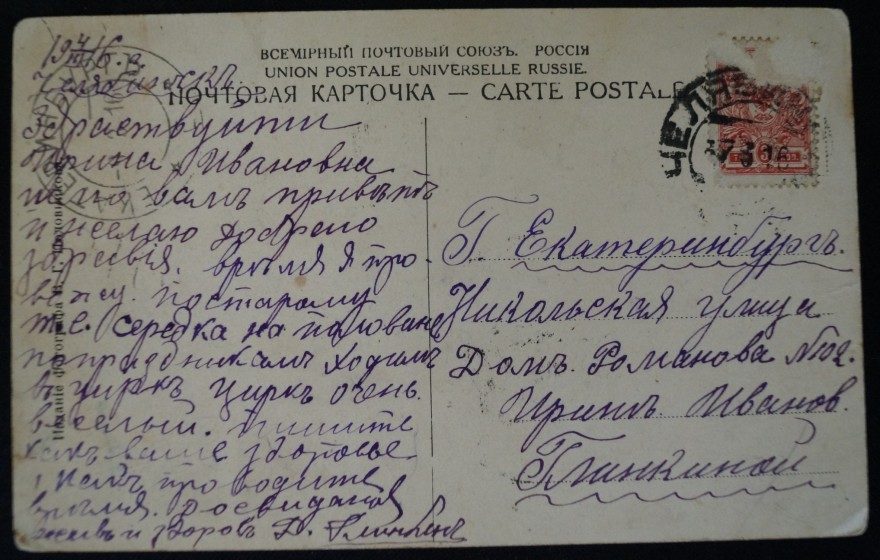 ВСЕМIРНЫЙ ПОЧТОВЫЙ СОЮЗЪ. РОССIЯ
UNION POSTALE UNIVERSELLE RUSSIE.
ПОЧТОВАЯ КАРТОЧКА — CARTE POSTALE
Челябинскъ
Здраствуйти
Ирина Ивановна
шлю вамъ привѣтъ
и желаю добраго
здоровія. время я про-
вожу. постарому
же. середка на половине
по празникамъ ходимъ
в циркъ циркъ очень.
веселый. Пишите
какъ ваше здоровье
и какъ проводите
время. Досвидания
живъ и здоровъ
Изданіе фотографа
ЧЕЛЯБ
Г. Екатеринбургъ.
Никольская улица
Домъ. Романова №102.
Иринѣ Иванов.
Глинкиной